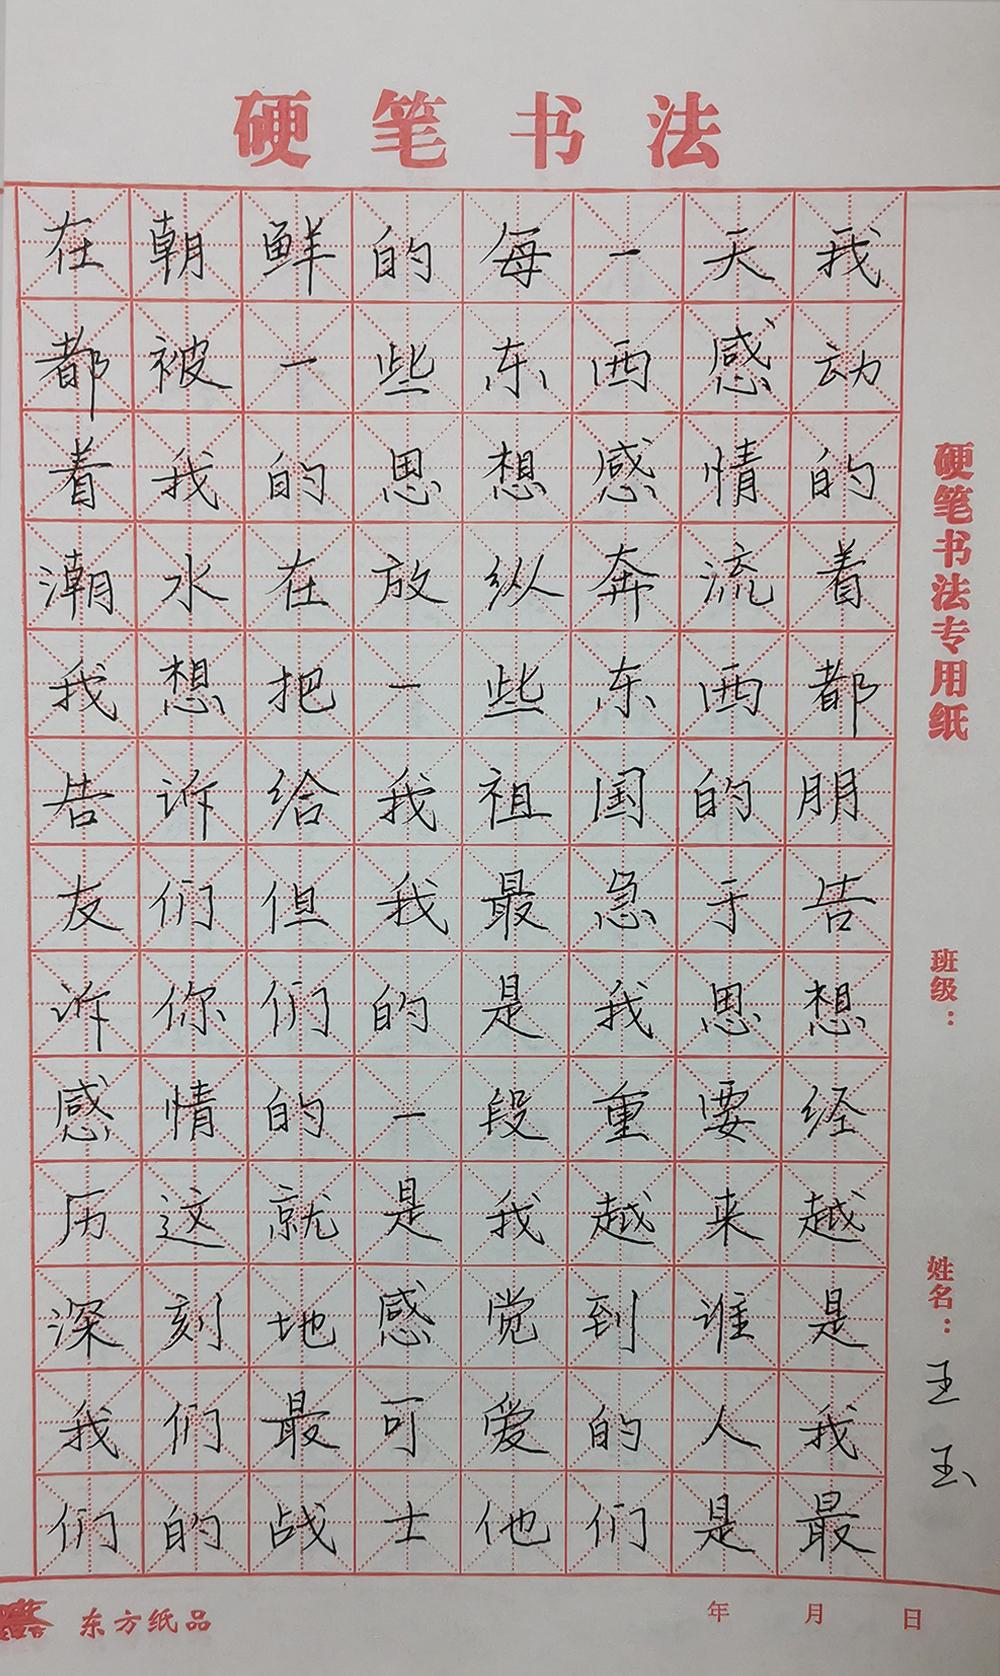 硬笔书法
在朝鲜的每一天我
都被一些东西感动
着我的思想感情的
潮水在放纵奔流着
我想把一些东西都
告诉给我祖国的朋
友们但我最急于告
诉你们的是我思想
感情的一段重要经
历这就是我越来越
深刻地感觉到谁是
我们最可爱的人我
们的战士他们是最
硬笔书法专用纸
班级：
姓名：王玉
东方纸品
年 月 日